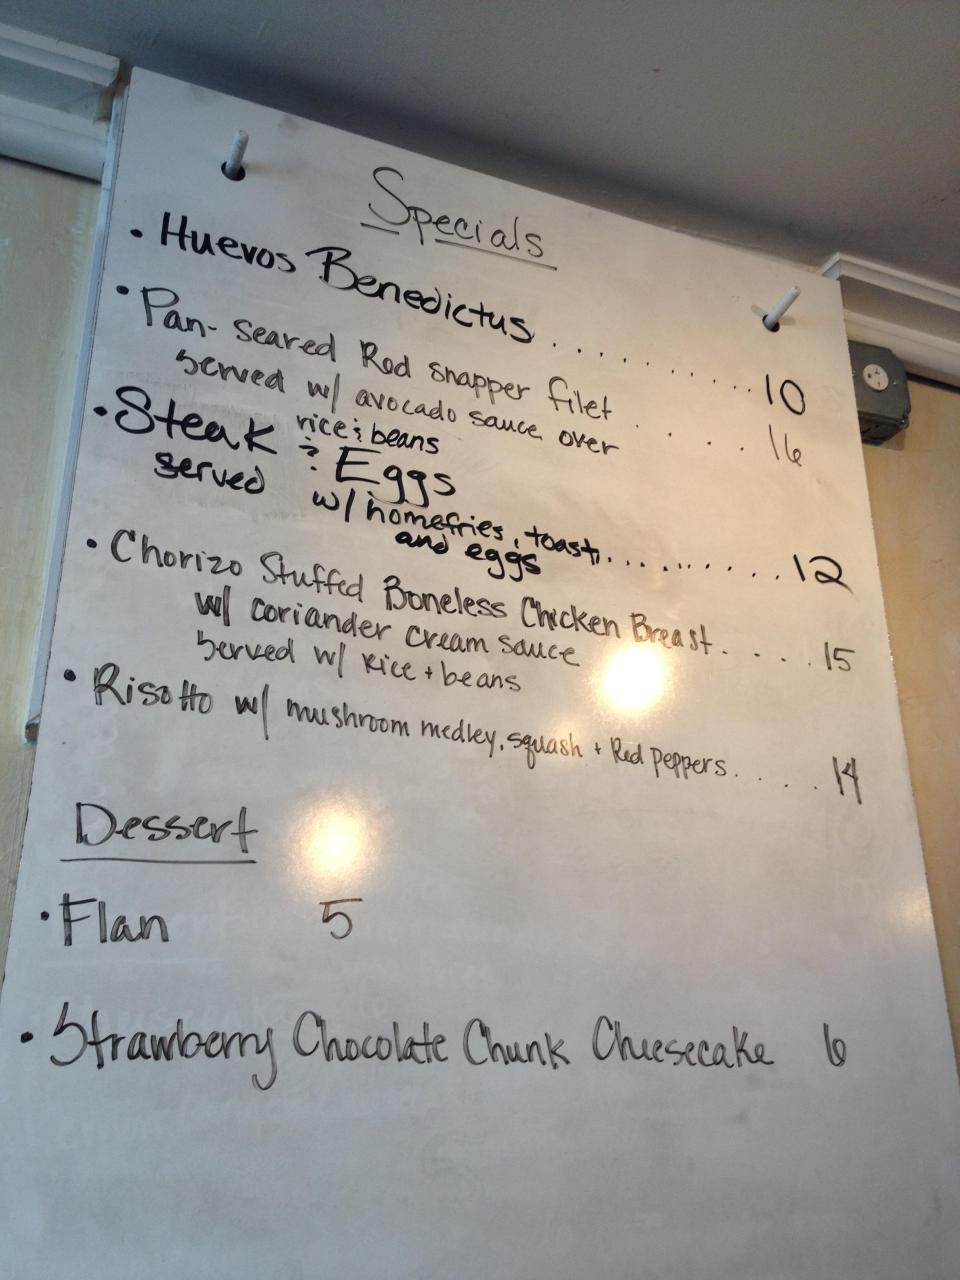 Specials
• Huevos Benedictus . . . . . . . . . . 10
• Pan-seared Red snapper filet
served w/ avocado sauce over . . . . 16
rice & beans
• Steak & Eggs
served w/ homefries, toast, . . . . . . . . . 12
and eggs
• Chorizo Stuffed Boneless Chicken Breast . . . . . 15
w/ coriander cream sauce
served w/ rice + beans
• Risotto w/ mushroom medley, squash + Red peppers . . . . . 14
Dessert
• Flan 5
• Strawberry Chocolate Chunk Cheesecake 6